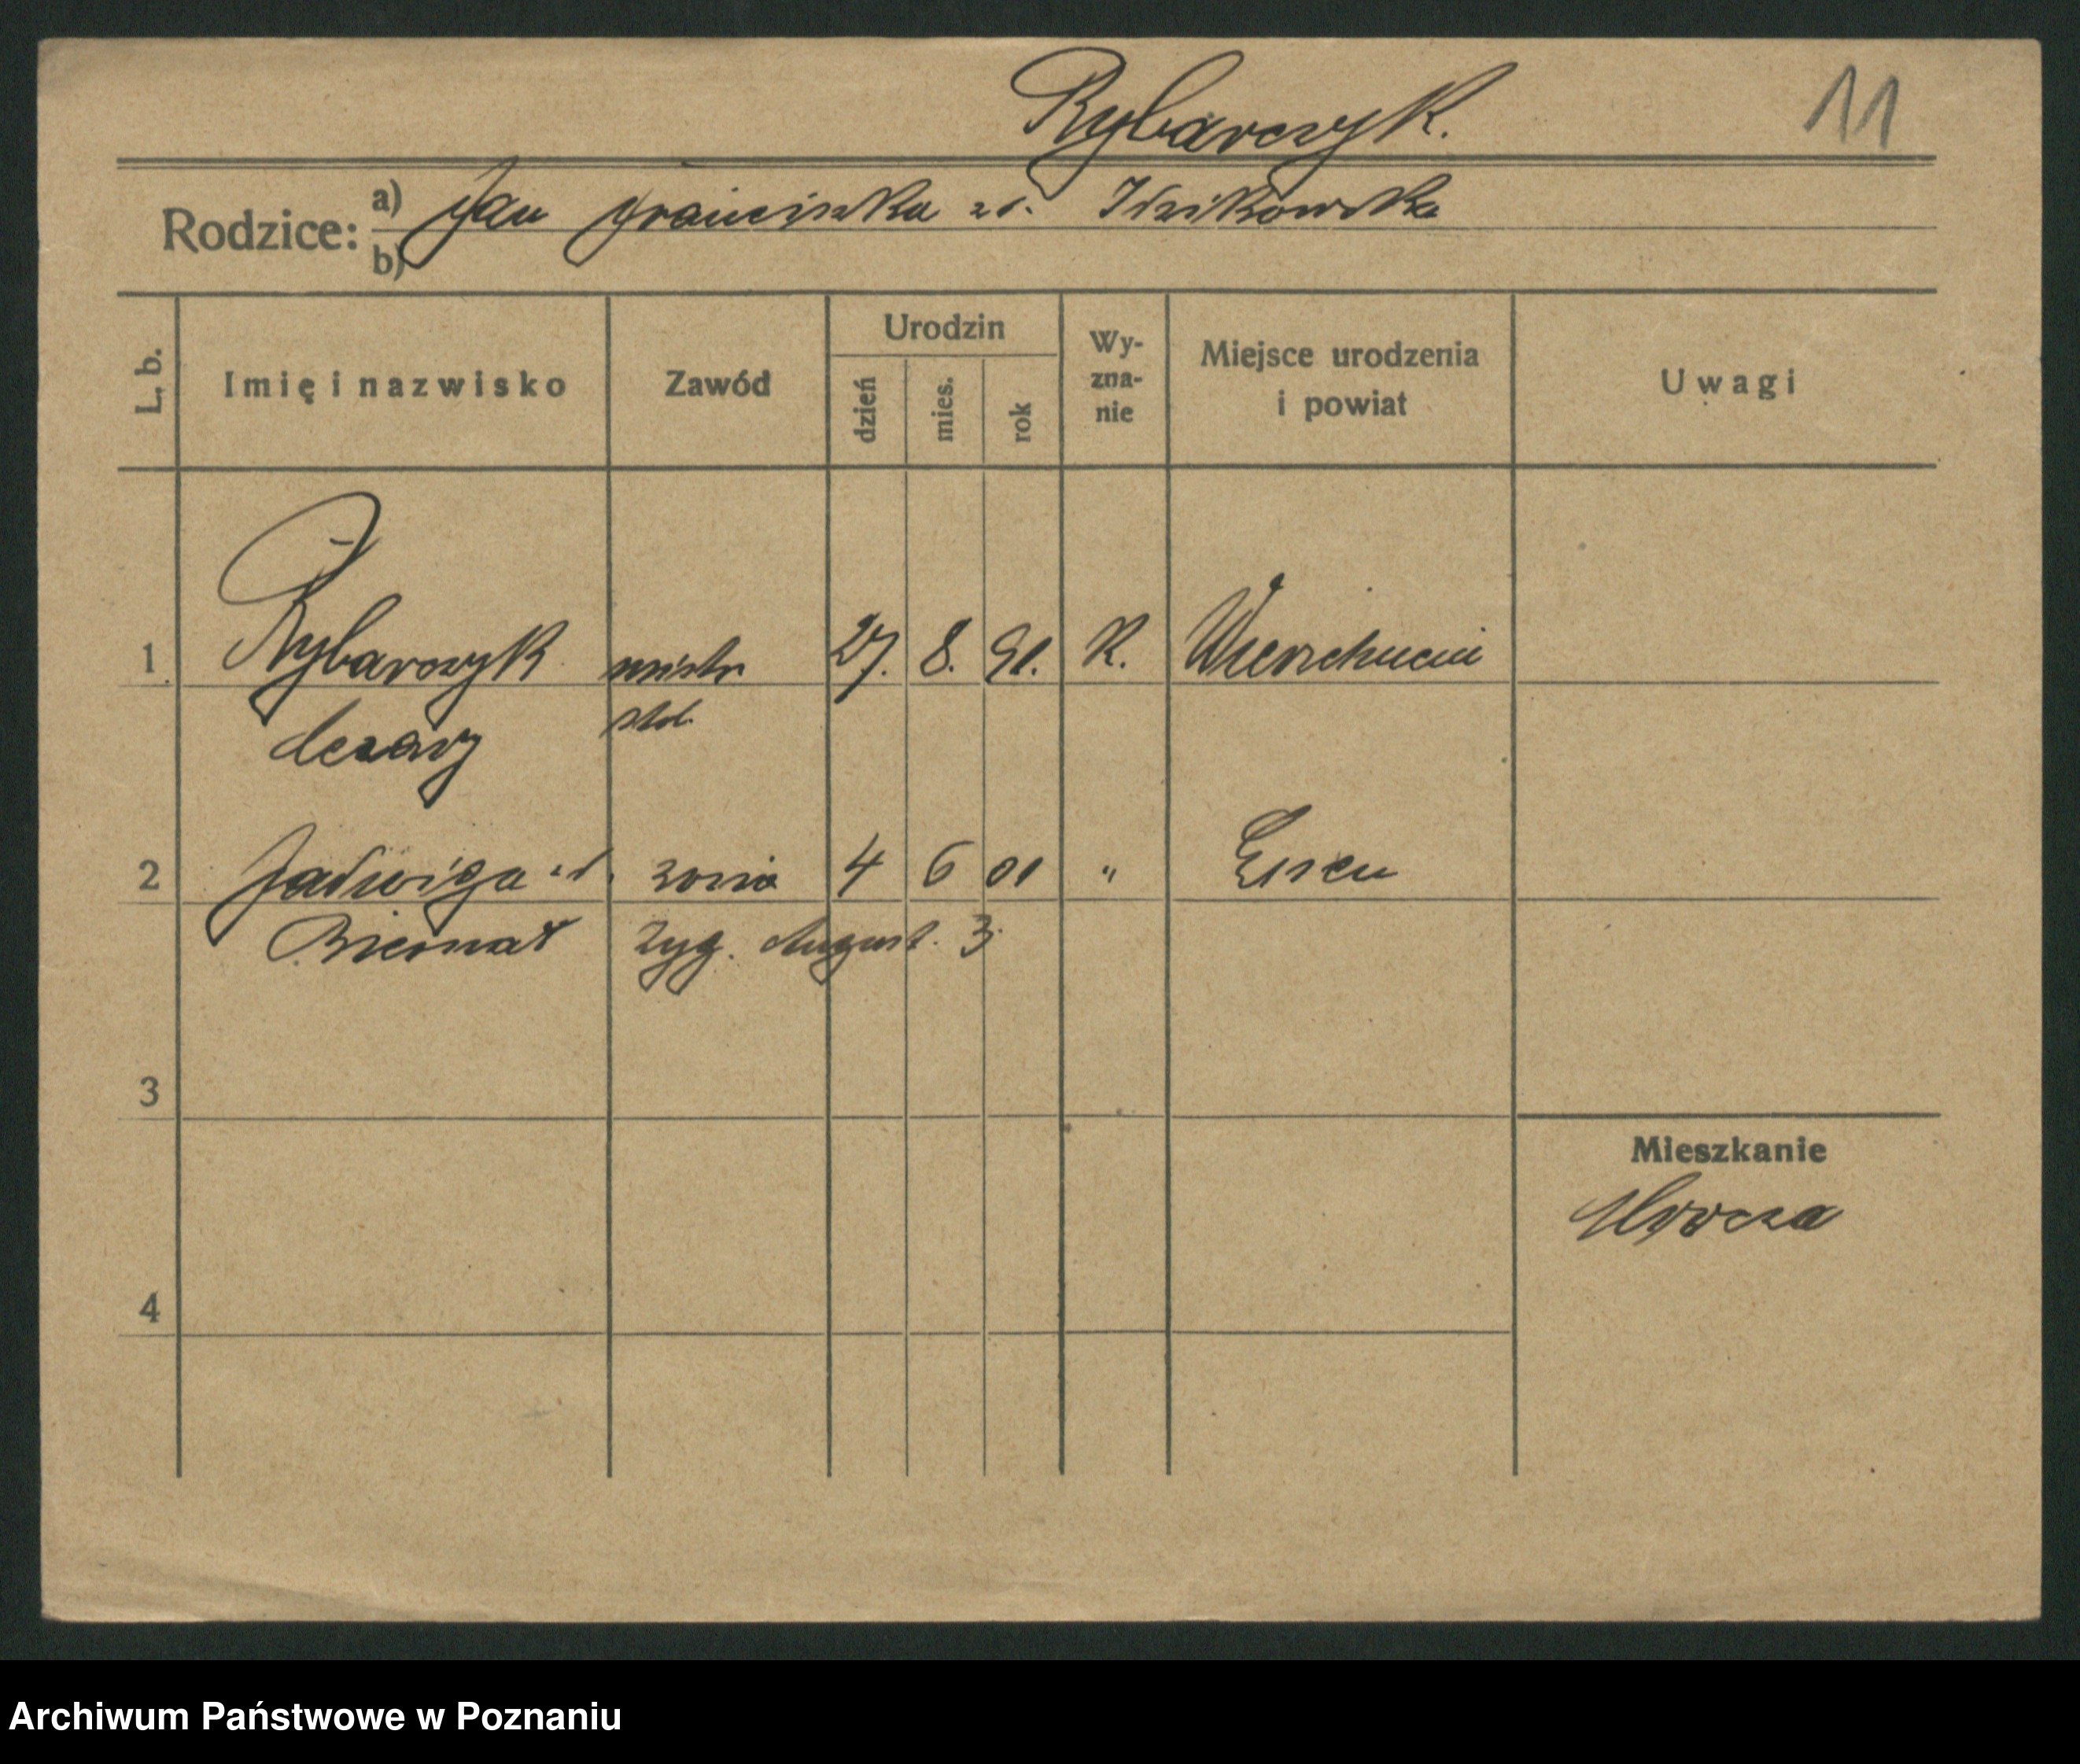 Rybarczyk.
11
Rodzice: a) Jan Franciszka zd. Idzikowska
b)
L. b.
Imię i nazwisko
Zawód
Urodzin
dzień
mies.
rok
Wy-
zna-
nie
Miejsce urodzenia
i powiat
Uwagi
1 Rybarczyk mistr 27. 8. 91. K. Wierzchucin
Cezary stol.
2 Jadwiga zd. żona 4 6 01 " Essen
Biernat Zyg. August. 3
3
Mieszkanie
Mrocza
4
Archiwum Państwowe w Poznaniu